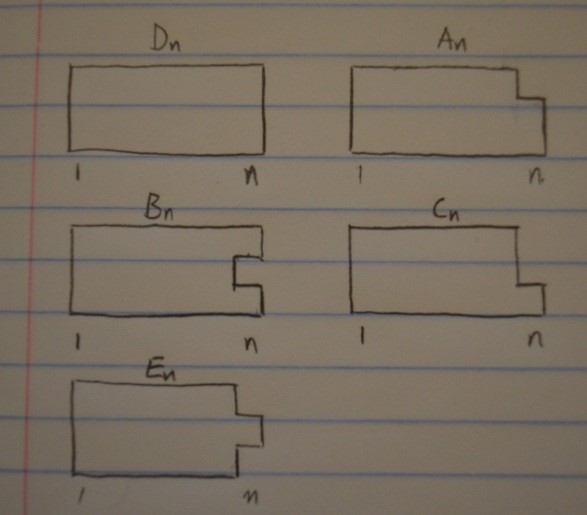 Dn An
1 n 1 n
Bn Cn
1 n 1 n
En
1 n